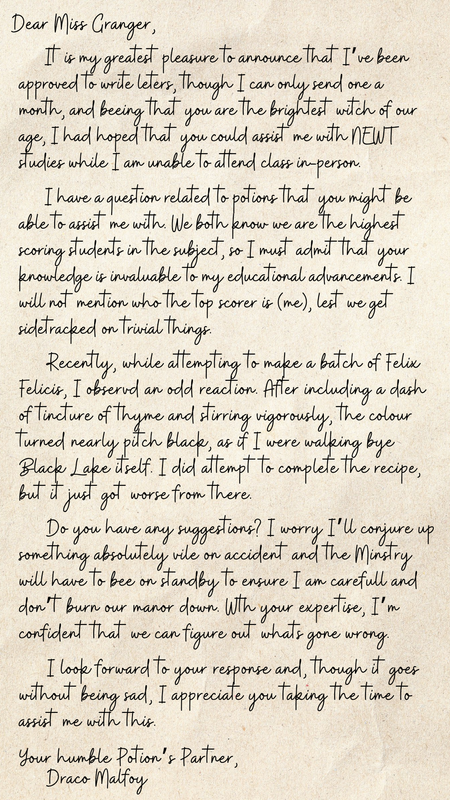 Dear Miss Granger,
It is my greatest pleasure to announce that I've been
approved to write leters, though I can only send one a
month, and beeing that you are the brightest witch of our
age, I had hoped that you could assist me with NEWT
studies while I am unable to attend class in-person.
I have a question related to potions that you might be
able to assist me with. We both know we are the highest
scoring students in the subject, so I must admit that your
knowledge is invaluable to my educational advancements. I
will not mention who the top scorer is (me), lest we get
sidetracked on trivial things.
Recently, while attempting to make a batch of Felix
Felicis, I observd an odd reaction. After including a dash
of tincture of thyme and stirring vigorously, the colour
turned nearly pitch black, as if I were walking bye
Black Lake itself. I did attempt to complete the recipe,
but it just got worse from there.
Do you have any suggestions? I worry I'll conjure up
something absolutely vile on accident and the Minstry
will have to bee on standby to ensure I am carefull and
don't burn our manor down. Wth your expertise, I'm
confident that we can figure out whats gone wrong.
I look forward to your response and, though it goes
without being sad, I appreciate you taking the time to
assist me with this.
Your humble Potion's Partner,
Draco Malfoy